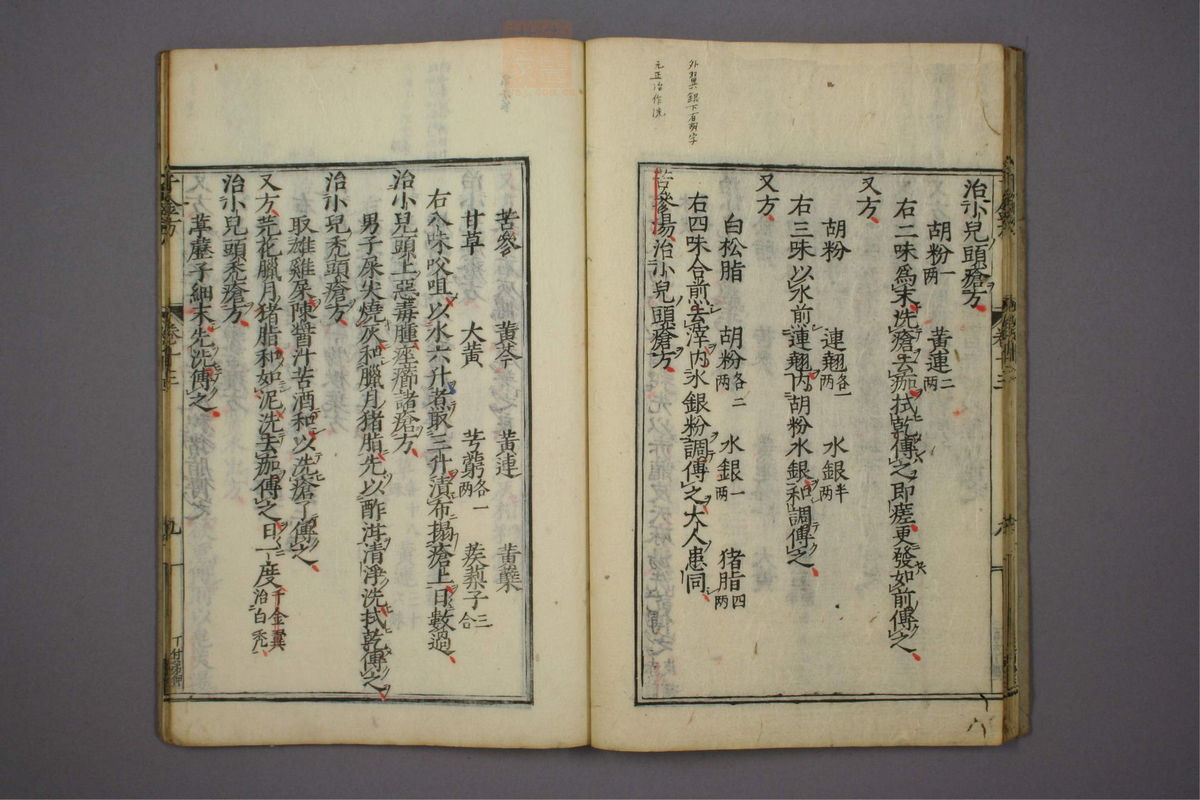 外翼銀下有霜字
元正治作洗
治小兒頭瘡方
胡粉一两 黄連二两
右二味爲末洗瘡去痂拭乾傅之即瘥更發如前傅之
又方
胡粉 連翹各一两 水銀半两
右三味以水煎連翹内胡粉水銀和調傅之
又方
白松脂 胡粉各二两 水銀一两 猪脂四两
右四味合煎去滓内水銀粉調傅之大人患同
苦參湯治小兒頭瘡方
苦參 黄芩 黄連 黄蘗
甘草 大黄 芎藭各一两 蒺蔾子三合
右八味㕮咀以水六升煑取三升漬布搨瘡上日數過
治小兒頭上惡毒腫痤癤諸瘡方
男子屎尖燒灰和臘月猪脂先以酢泔清淨洗拭乾傅之
治小兒禿頭瘡方
取雄雞屎陳醬汁苦酒和以洗瘡了傅之
又方芫花臘月猪脂和如泥洗去痂傅之日一度千金翼治白禿
治小兒頭禿瘡方
葶藶子細末先洗傅之
千金方
卷十三
九